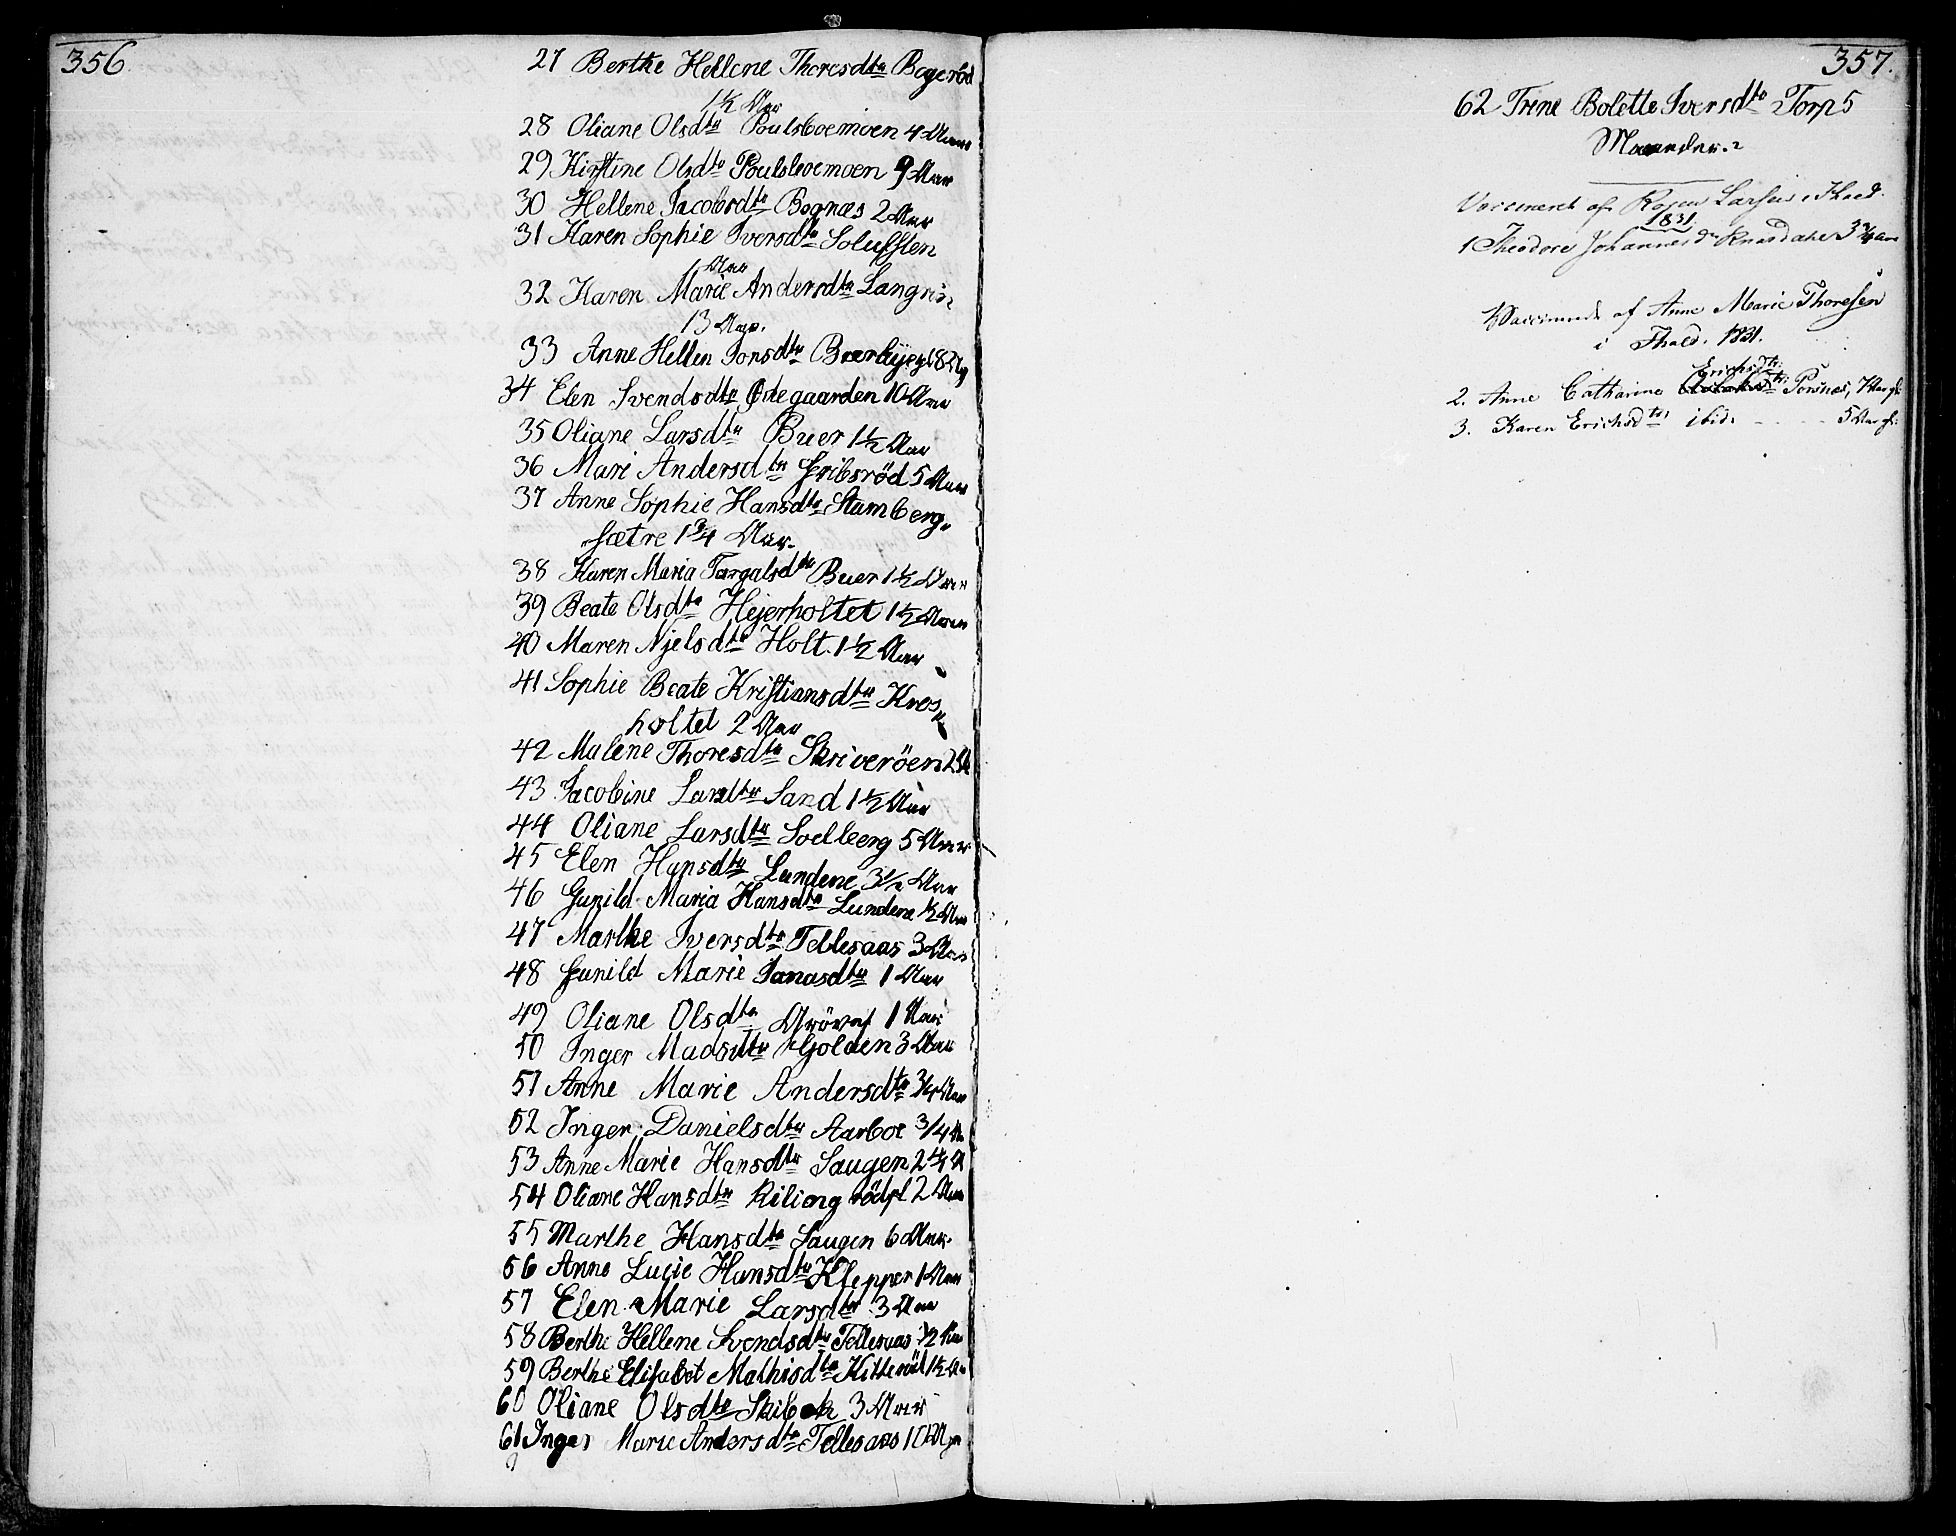 356.
27 Berthe Hellene Thoresdtr Bøgerød
1½ Aar
28 Oliane Olsdtr Poulsboemoen 4 Aar
29 Kirstine Olsdtr Poulsboemoen 9 Aar
30 Hellene Jacobsdtr Bognæs 2 Aar
31 Karen Sophie Iversdtr
Aar
32 Karen Marie Andersdtr
13 Aar.
33 Anne Hellen Jonsdtr
34 Elen Svendsdtr Ødegaarden 10 Aar
35 Oliane Larsdtr Buer 1½ Aar
36 Mari Andersdtr Gribsröd 5 Aar
37 Anne Sophie Hansdtr Stumberg„
sætre 1¾ Aar.
38 Karen Maria Buer 1½ Aar
39 Beate Olsdtr Hejerholtet 1½ Aar
40 Maren Njelsdtr Holt. 1½ Aar
41 Sophie Beate Kristiansdtr Kros„
holtet 2 Aar
42 Malene Thoresdtr Skriveröen
43 Jacobine Larsdtr Sand 1½ Aar
44 Oliane Larsdtr Soelberg 5 Aar
45 Elen Hansdtr Lundene 3½ Aar
46 Gunild Maria Hansdtr Lundene ½ Aar
47 Marthe Iversdtr Tellesaas 3 Aar
48 Gunild Marie Jonasdtr 1 Aar
49 Oliane Olsdtr 1 Aar
50 Inger Madsdtr Golden 3 Aar
51 Anne Marie Andersdtr ¾ Aar
52 Inger Danielsdtr Aarboe 3/4 Aar
53 Anne Marie Hansdtr Saugen
54 Oliane Hansdtr 2 Aar
55 Marthe Hansdtr Saugen 6 Aar.
56 Anne Lucie Hansdtr Klepper 1 Aar
57 Elen Marie Larsdtr 3 Aar
58 Berthe Hellene Svendsdtr Tellesaas ½ Aar
59 Berthe Elisabet Mathisdtr Kitteröd 1½ Aar
60 Oliane Olsdtr Skibek 3 Aar
61 Inger Marie Andersdtr Tellesaas
357.
62 Trene Bolette Iversdtr Torp 5
Maaneder.
Vaccineret af Larsen, Fhald.
1831
1 Theodore Johannesdr
Vaccinerede af Anne Marie Thoresen
i Fhald. 1831.
Erichsdtr
2. Anne Catharine Torsnæs, 7 Aar gl.
3. Karen Erichsdtr ibid. - - - - 5 Aar gl.